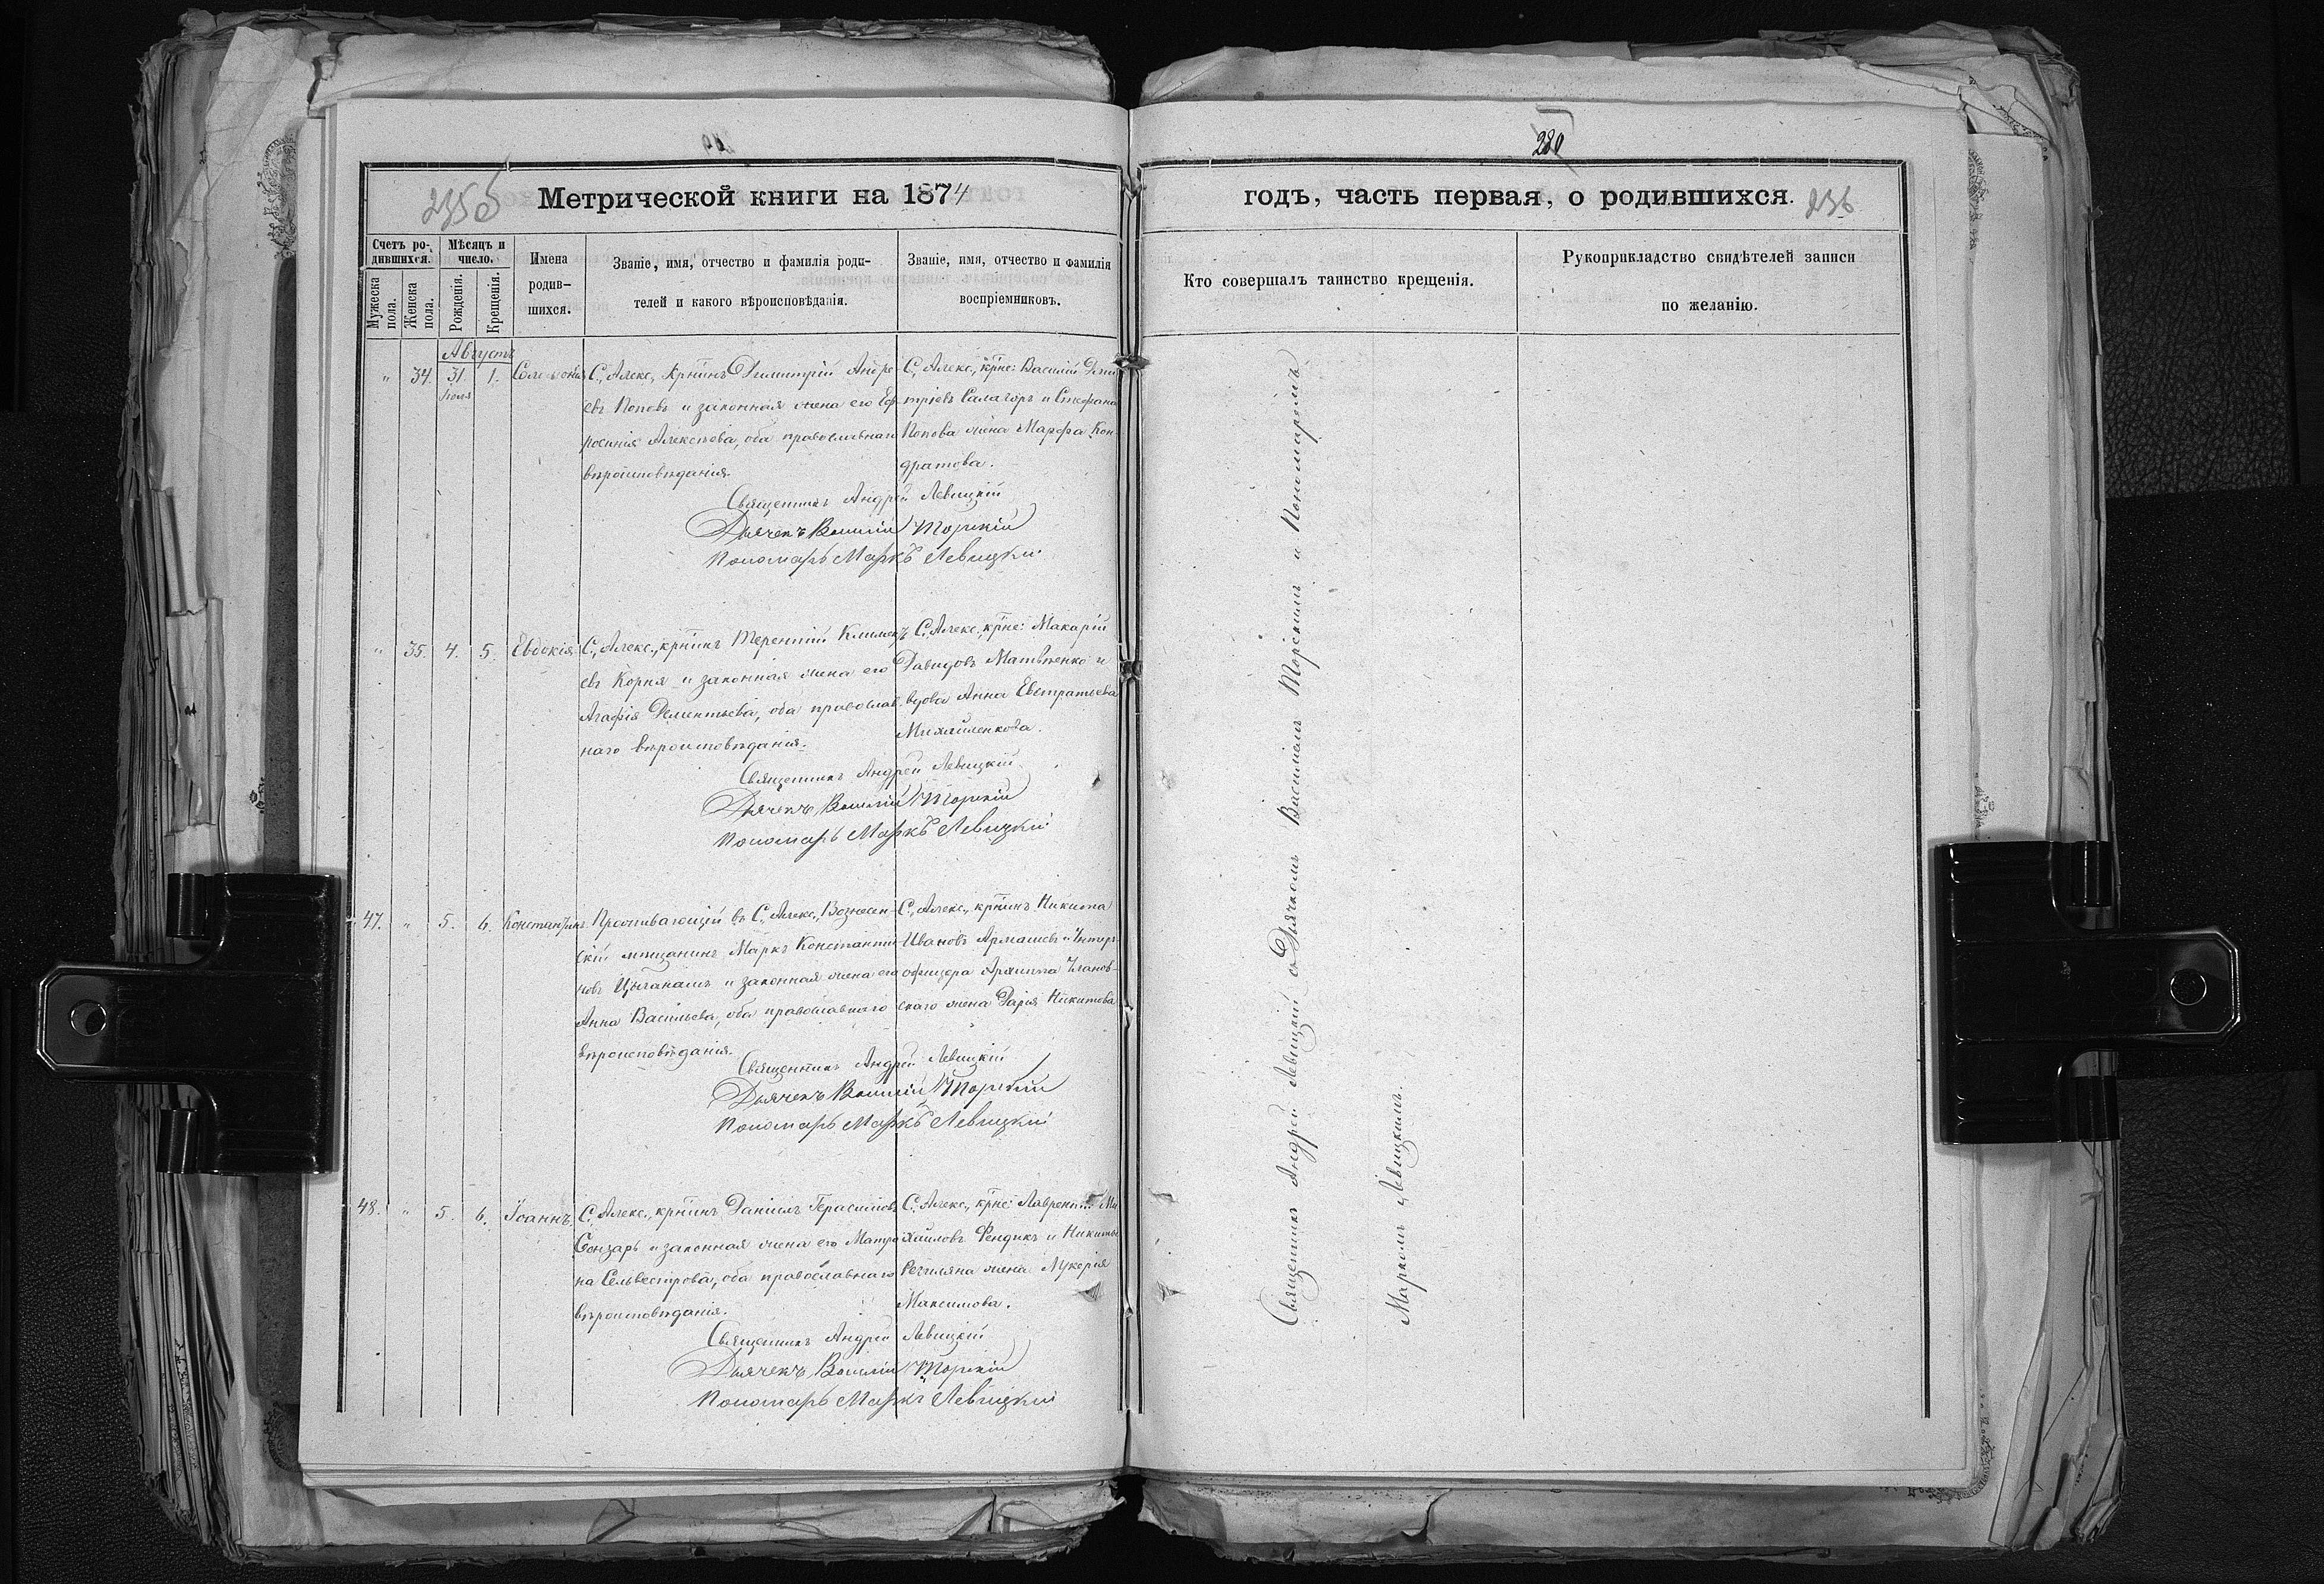 280
235 б
Метрической книги на 1874
годъ, часть первая, о родившихся.
236
Счетъ ро-
дившихся.
Мужеска
пола.
Женска
пола.
Мѣсяцъ и
число.
Рожденія.
Крещенія.
Имена
родив-
шихся.
Званіе, имя, отчество и фамилія роди-
телей и какого вѣроисповѣданія.
Званіе, имя, отчество и фамилія
воспріемниковъ.
Кто совершалъ таинство крещенія.
Рукоприкладство свидѣтелей записи
по желанію.
Августъ
" 34. 31. 1.
Іюля
С. Алекс. крнинъ Димитрій Андре
евъ Поповъ и законная жена его Еф-
росинія Алексѣева, оба православнаго
вѣроисповѣданія.
С. Алекс. крне: Василій Дми
тріевъ Салагоръ и Стефана
Попова жена Марфа Кон-
дратова.
Священникъ Андрей Левицкій
Дьячекъ Василій Торскій
Пономарь Маркъ Левицкій
" 35. 4. 5. Евдокія
С. Алекс. крнинъ Терентій Климен
евъ Корня и законная жена его
Агафія Дементьева, оба православ-
наго вѣроисповѣданія.
С. Алекс. крне: Макарій
Давидовъ Матвѣенко и
вдова Анна Евстратьева
Михайленкова.
Священникъ Андрей Левицкій
Дьячекъ Василій Торскій
Пономарь Маркъ Левицкій
47. " 5. 6. Константинъ
Проживающій въ С. Алекс. Вознесен-
скій мѣщанинъ Маркъ Константи-
новъ и законная жена его
Анна Васильева, оба православнаго
вѣроисповѣданія.
С. Алекс. крнинъ Никита
Ивановъ Армашевъ и Унтеръ-
офицера Архипа Уланов-
скаго жена Дарія Никитова
Священникъ Андрей Левицкій
Дьячекъ Василій Торскій
Пономарь Маркъ Левицкій
48. " 5. 6. Іоаннъ.
С. Алекс. крнинъ Даніилъ Герасимовъ
Бонзарь и законная жена его Матро
на Сельвестрова, оба православнаго
вѣроисповѣданія.
С. Алекс. крне: Лаврентій Ми
хайловъ Фендикъ и Никиты
жена Лукерія
Максимова.
Священникъ Андрей Левицкій
Дьячекъ Василій Торскій
Пономарь Маркъ Левицкій
Священникъ Андрей Левицкій съ Дьячкомъ Василіемъ Торскимъ и Пономаремъ
Маркомъ Левицкимъ.